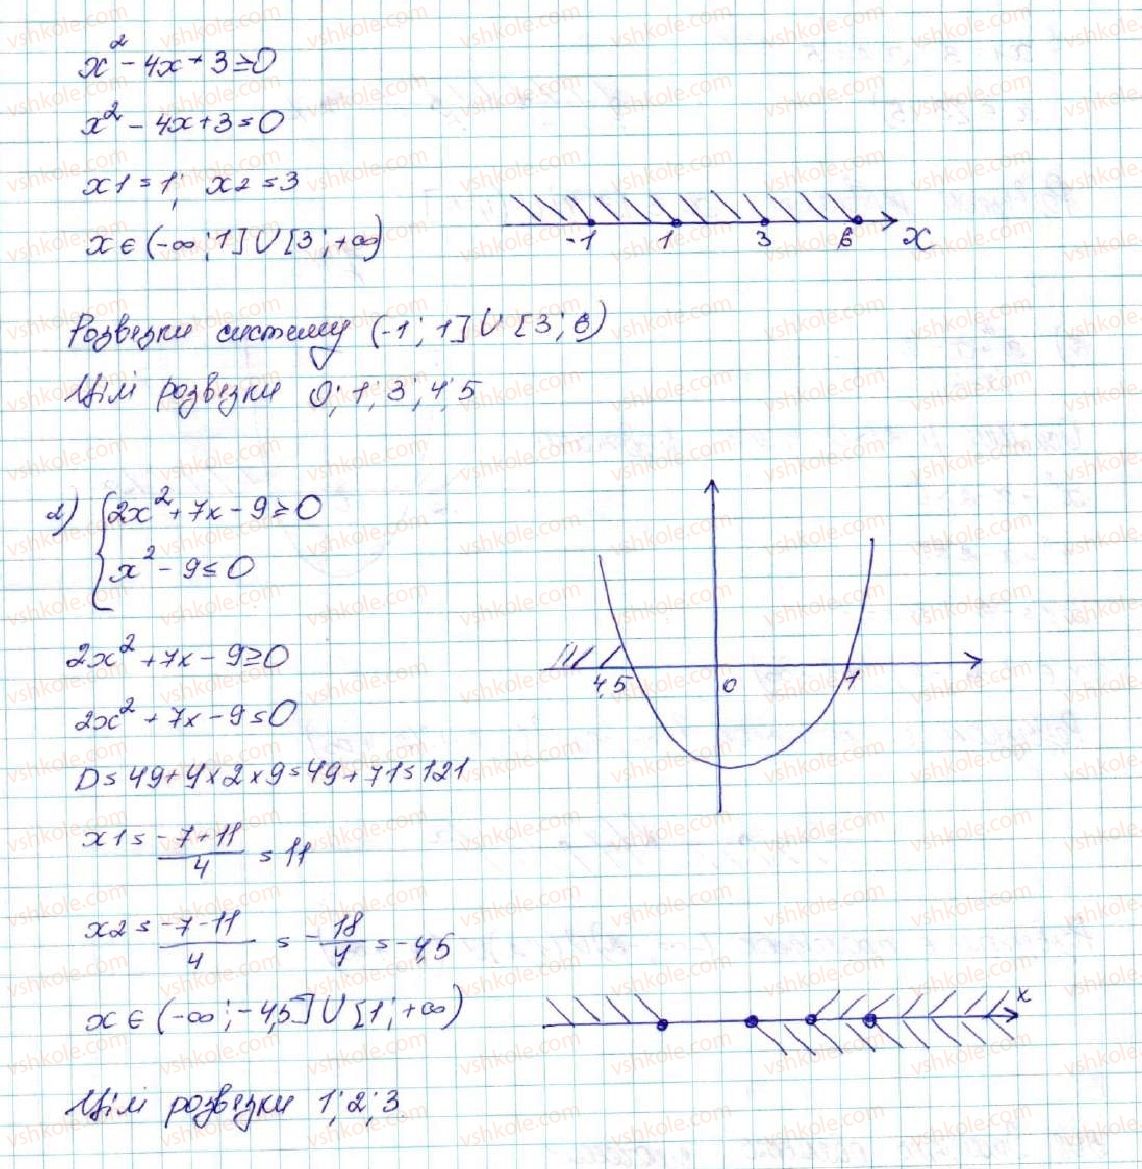 x² - 4x + 3 ≥ 0
x² - 4x + 3 = 0
x1 = 1; x2 = 3
x ∈ (-∞; 1] ∪ [3; +∞)
-1 1 3 6 x
Розвязки системи (-1; 1] ∪ [3; 6)
Цілі розвязки 0; 1; 3; 4; 5
2) { 2x² + 7x - 9 ≥ 0
x² - 9 ≤ 0
2x² + 7x - 9 ≥ 0
4,5 0 1
2x² + 7x - 9 = 0
D = 49 + 4 × 2 × 9 = 49 + 71 = 121
x1 = (-7 + 11)/4 = 11
x2 = (-7 - 11)/4 = -18/4 = -4,5
x ∈ (-∞; -4,5] ∪ [1; +∞)
x
Цілі розвязки 1; 2; 3
vshkole.com